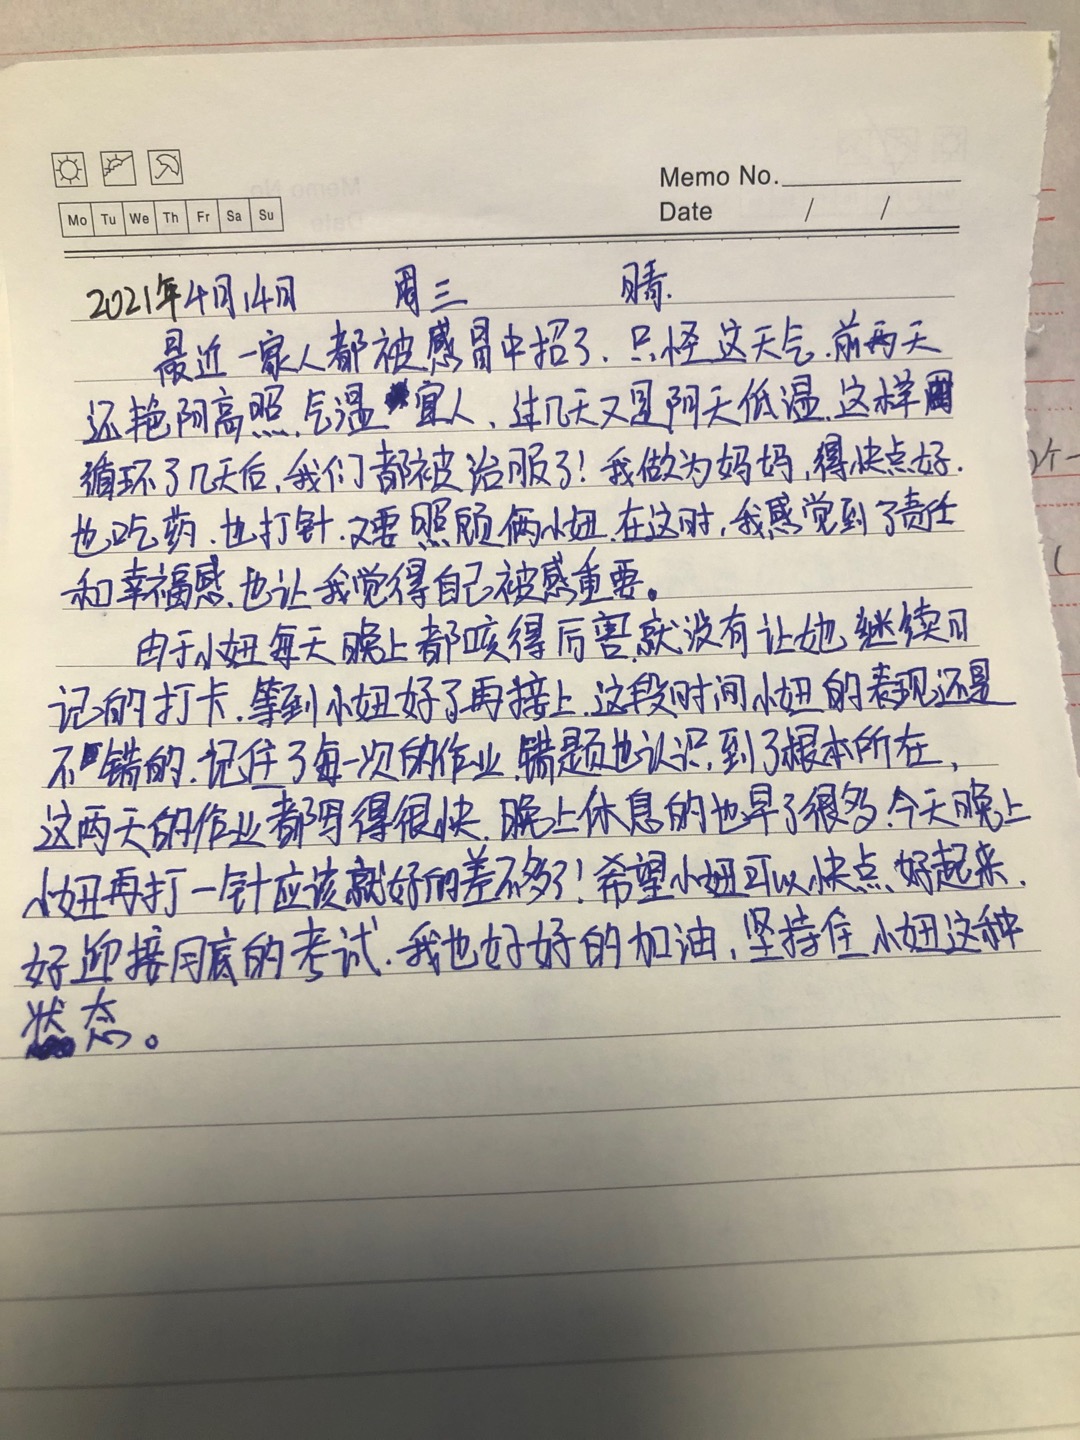 Memo No.
Mo Tu We Th Fr Sa Su
Date / /
2021年4月14日 周三 晴.
最近一家人都被感冒中招了.只怪这天气.前两天
还艳阳高照.气温宜人、过几天又是阴天低温.这样周
循环了几天后,我们都被治服了!我做为妈妈,得快点好.
也吃药.也打针.又要照顾俩小妞.在这时,我感觉到了责任
和幸福感.也让我觉得自己被感重要。
由于小妞每天晚上都咳得厉害.就没有让她继续日
记的打卡.等到小妞好了再接上.这段时间小妞的表现还是
不错的.记住了每一次的作业.错题也认识到了根本所在,
这两天的作业都写得很快.晚上休息的也早了很多.今天晚上
小妞再打一针应该就好的差不多了!希望小妞可以快点好起来.
好迎接月底的考试.我也好好的加油,坚持住小妞这种
状态。